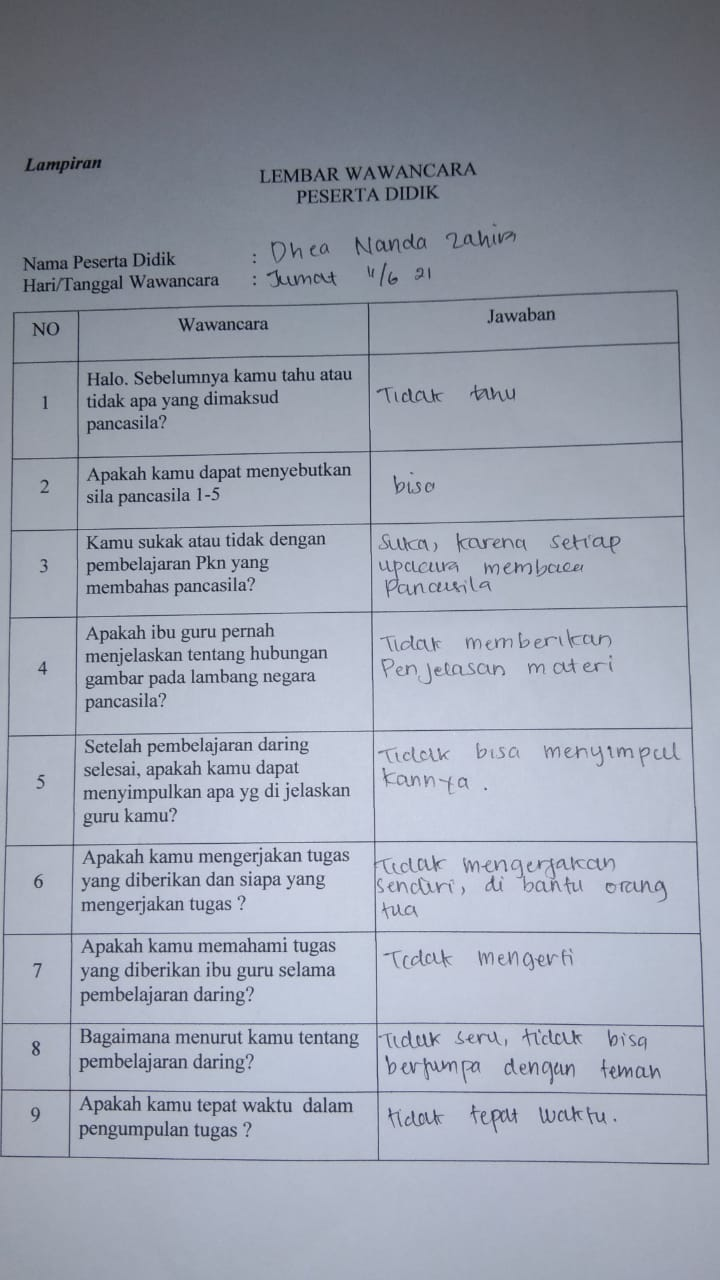 Lampiran
LEMBAR WAWANCARA
PESERTA DIDIK
Nama Peserta Didik : Dhea Nanda Zahira
Hari/Tanggal Wawancara : Jumat 11/6 21
NO Wawancara Jawaban
1 Halo. Sebelumnya kamu tahu atau
tidak apa yang dimaksud
pancasila?
Tidak tahu
2 Apakah kamu dapat menyebutkan
sila pancasila 1-5
bisa
3 Kamu sukak atau tidak dengan
pembelajaran Pkn yang
membahas pancasila?
Suka, karena setiap
upacara membaca
Pancasila
4 Apakah ibu guru pernah
menjelaskan tentang hubungan
gambar pada lambang negara
pancasila?
Tidak memberikan
Penjelasan materi
5 Setelah pembelajaran daring
selesai, apakah kamu dapat
menyimpulkan apa yg di jelaskan
guru kamu?
Tidak bisa menyimpul
kannya.
6 Apakah kamu mengerjakan tugas
yang diberikan dan siapa yang
mengerjakan tugas ?
Tidak mengerjakan
Sendiri, di bantu orang
tua
7 Apakah kamu memahami tugas
yang diberikan ibu guru selama
pembelajaran daring?
Tidak mengerti
8 Bagaimana menurut kamu tentang
pembelajaran daring?
Tidak seru, tidak bisa
berjumpa dengan teman
9 Apakah kamu tepat waktu dalam
pengumpulan tugas ?
tidak tepat waktu.